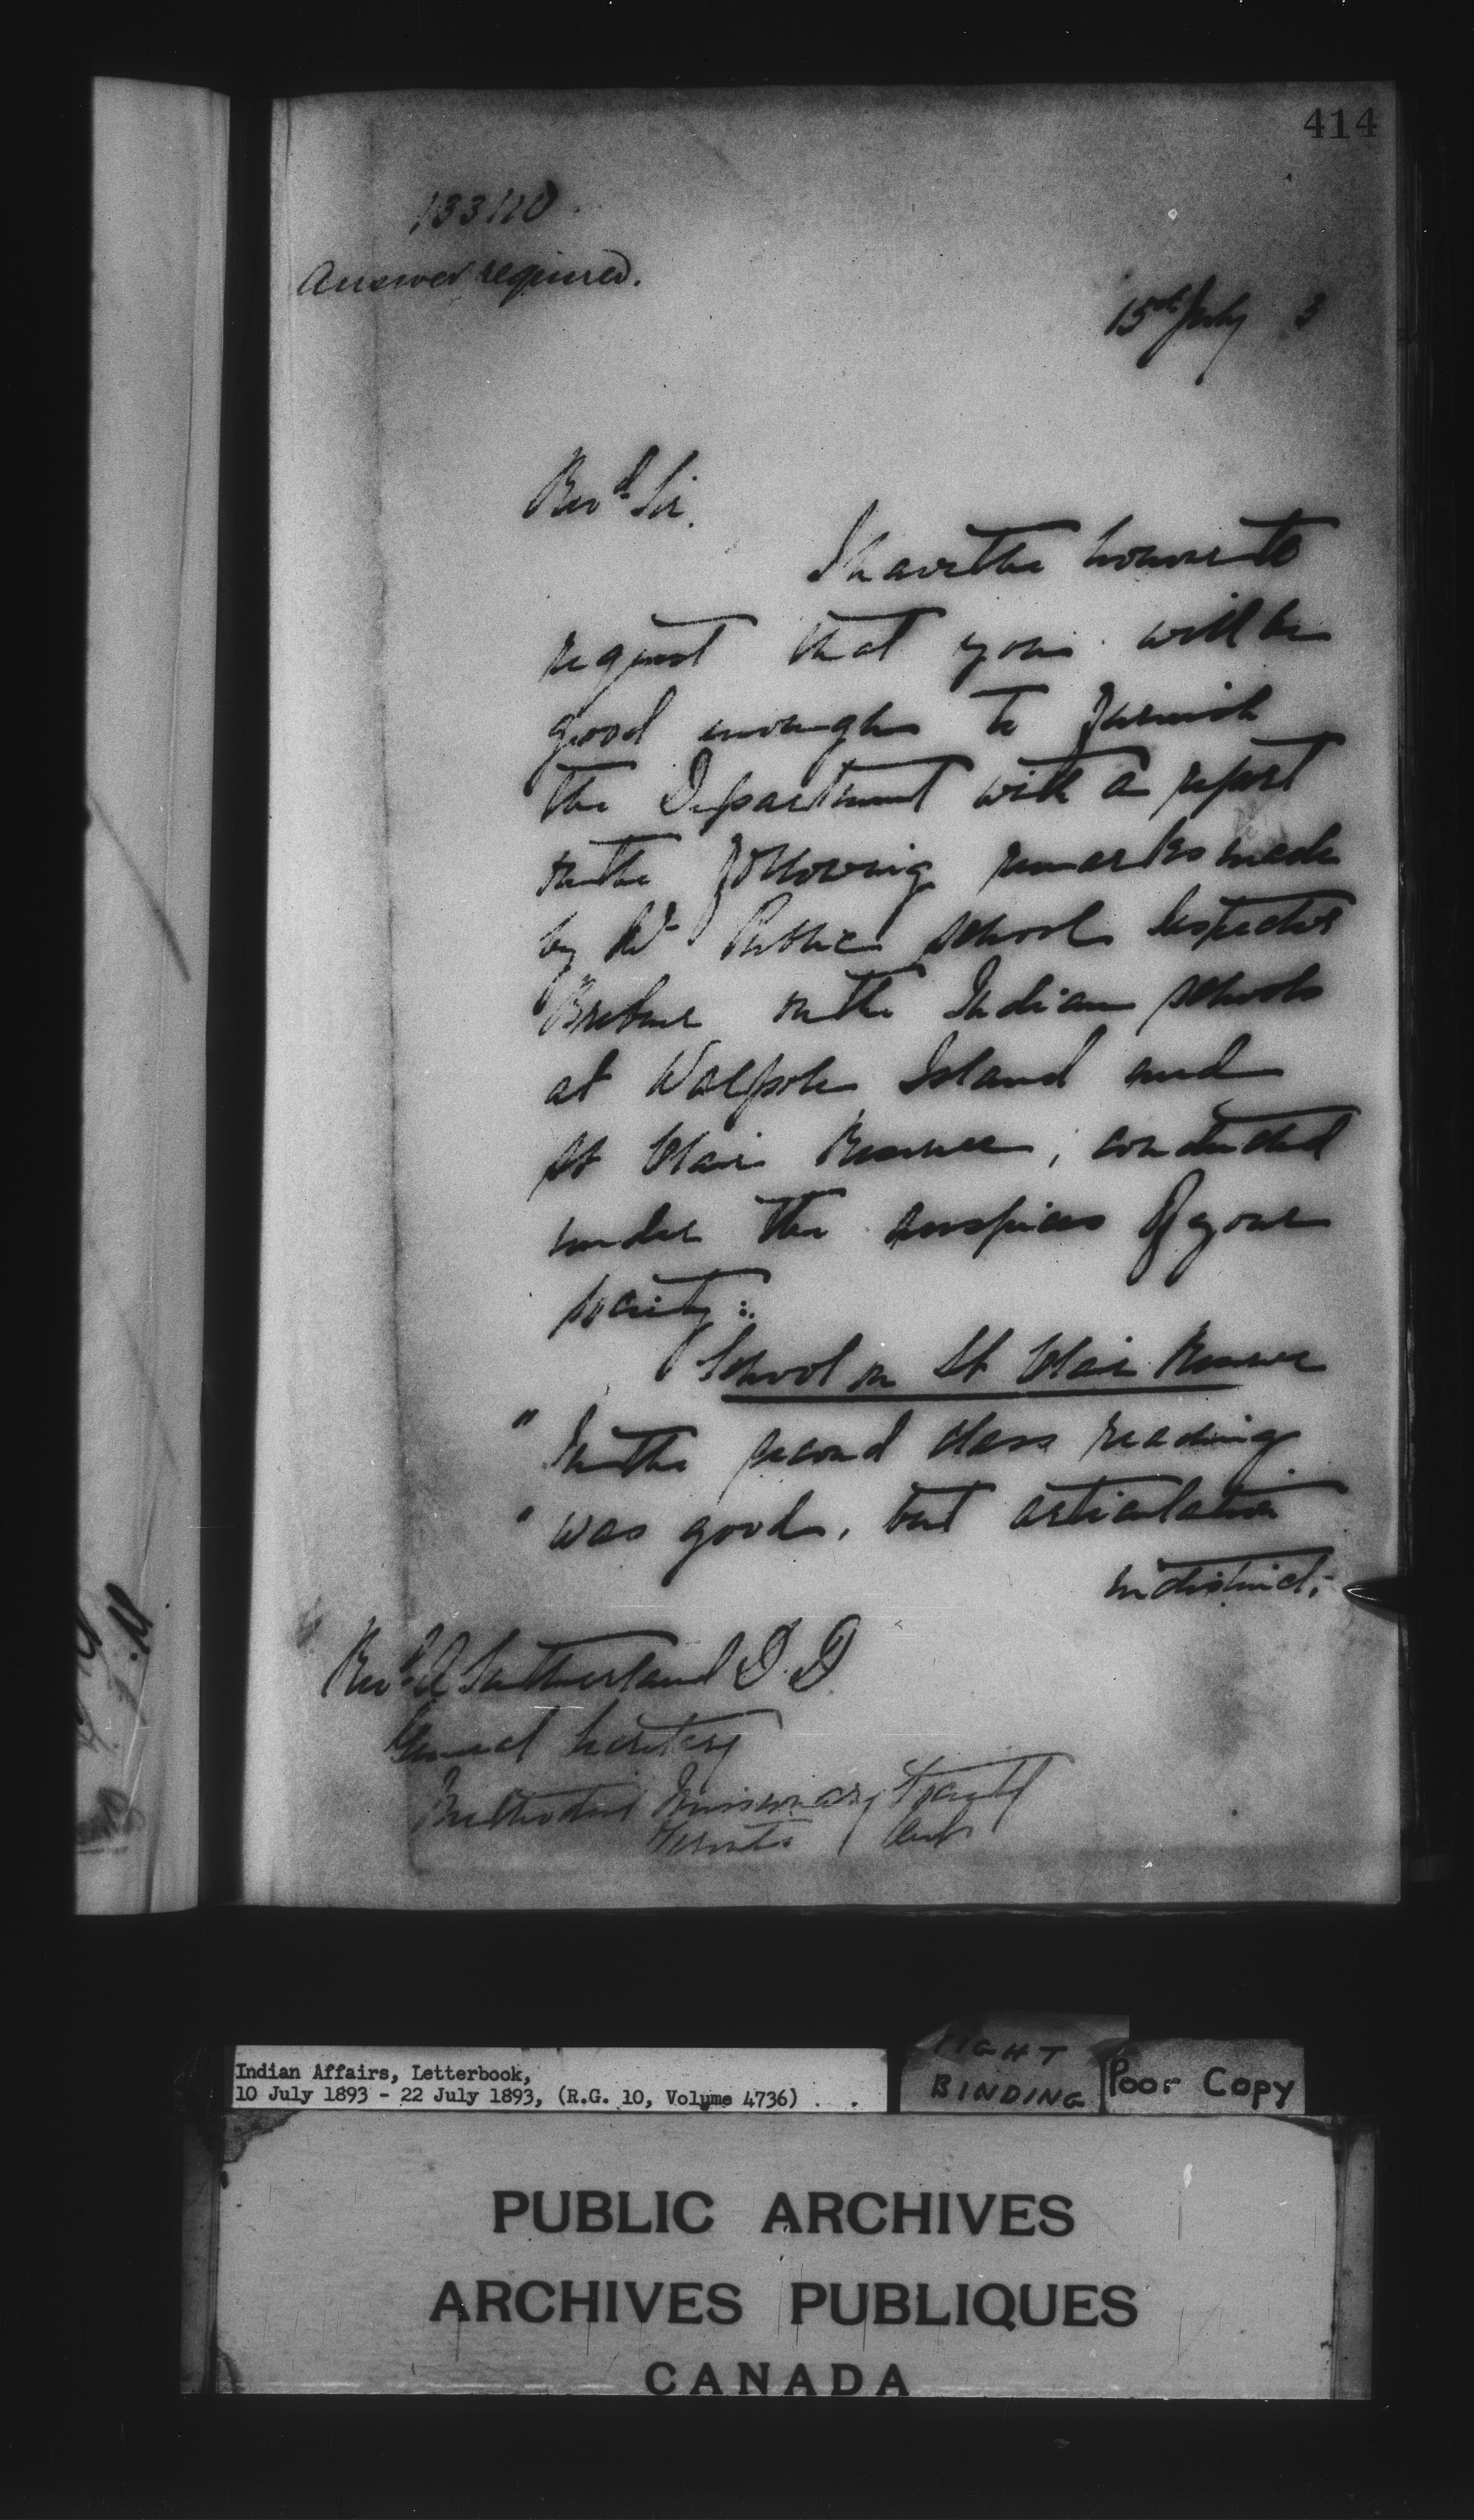 414
133110
Answer required.
15th July 3
Revd Sir.
I have the honour to
request that you will be
good enough to furnish
the Department with a report
on the following remarks made
by Public School Inspector
on the Indian schools
at Walpole Island and
St Clair Reserve, conducted
under the auspices of your
society:
School on St Clair Reserve
" In the second class reading
" was good, but articulation
indistinct;
Revd A Sutherland D. D.
General Secretary
Methodist Missionary Society
Toronto Ont
Indian Affairs, Letterbook,
10 July 1893 - 22 July 1893, (R.G. 10, Volume 4736)
TIGHT
BINDING
Poor Copy
PUBLIC ARCHIVES
ARCHIVES PUBLIQUES
CANADA